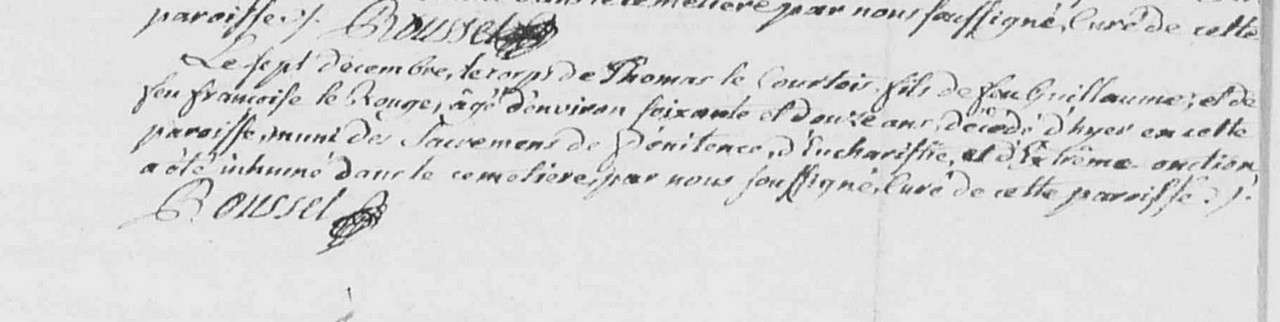 dans le cemetiere par nous soussigné, Curé de cette
paroisse ./. Roussel
Le sept décembre, le corps de Thomas le Courtois, fils de feu Guillaume, et de
feu francoise le Rouge, âgé d'environ soixante et douze ans, décédé d'hyer en cette
paroisse, muni des Sacremens de Pénitence, d'Eucharistie, et d'Extrême onction,
a été inhumé dans le cemetiere, par nous soussigné, Curé de cette paroisse ./.
Roussel